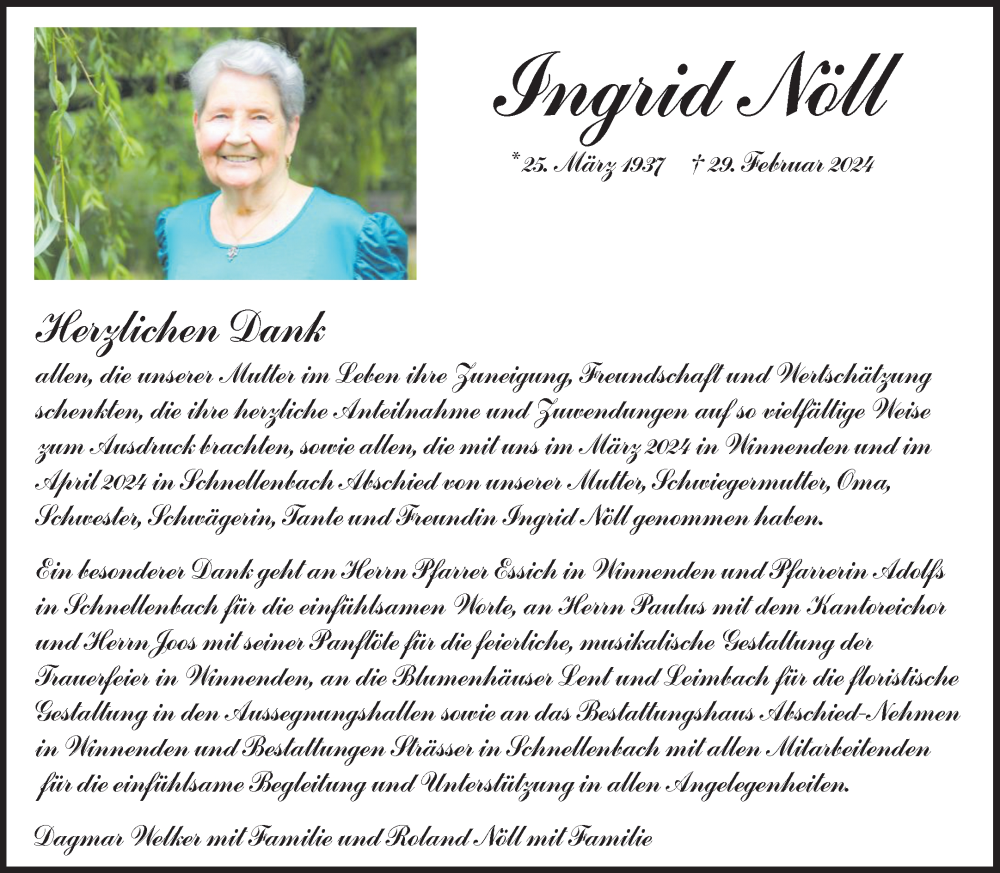 Ingrid Nöll
* 25. März 1937 † 29. Februar 2024
Herzlichen Dank
allen, die unserer Mutter im Leben ihre Zuneigung, Freundschaft und Wertschätzung
schenkten, die ihre herzliche Anteilnahme und Zuwendungen auf so vielfältige Weise
zum Ausdruck brachten, sowie allen, die mit uns im März 2024 in Winnenden und im
April 2024 in Schnellenbach Abschied von unserer Mutter, Schwiegermutter, Oma,
Schwester, Schwägerin, Tante und Freundin Ingrid Nöll genommen haben.
Ein besonderer Dank geht an Herrn Pfarrer Essich in Winnenden und Pfarrerin Adolfs
in Schnellenbach für die einfühlsamen Worte, an Herrn Paulus mit dem Kantoreichor
und Herrn Joos mit seiner Panflöte für die feierliche, musikalische Gestaltung der
Trauerfeier in Winnenden, an die Blumenhäuser Lent und Leimbach für die floristische
Gestaltung in den Aussegnungshallen sowie an das Bestattungshaus Abschied-Nehmen
in Winnenden und Bestattungen Strässer in Schnellenbach mit allen Mitarbeitenden
für die einfühlsame Begleitung und Unterstützung in allen Angelegenheiten.
Dagmar Welker mit Familie und Roland Nöll mit Familie